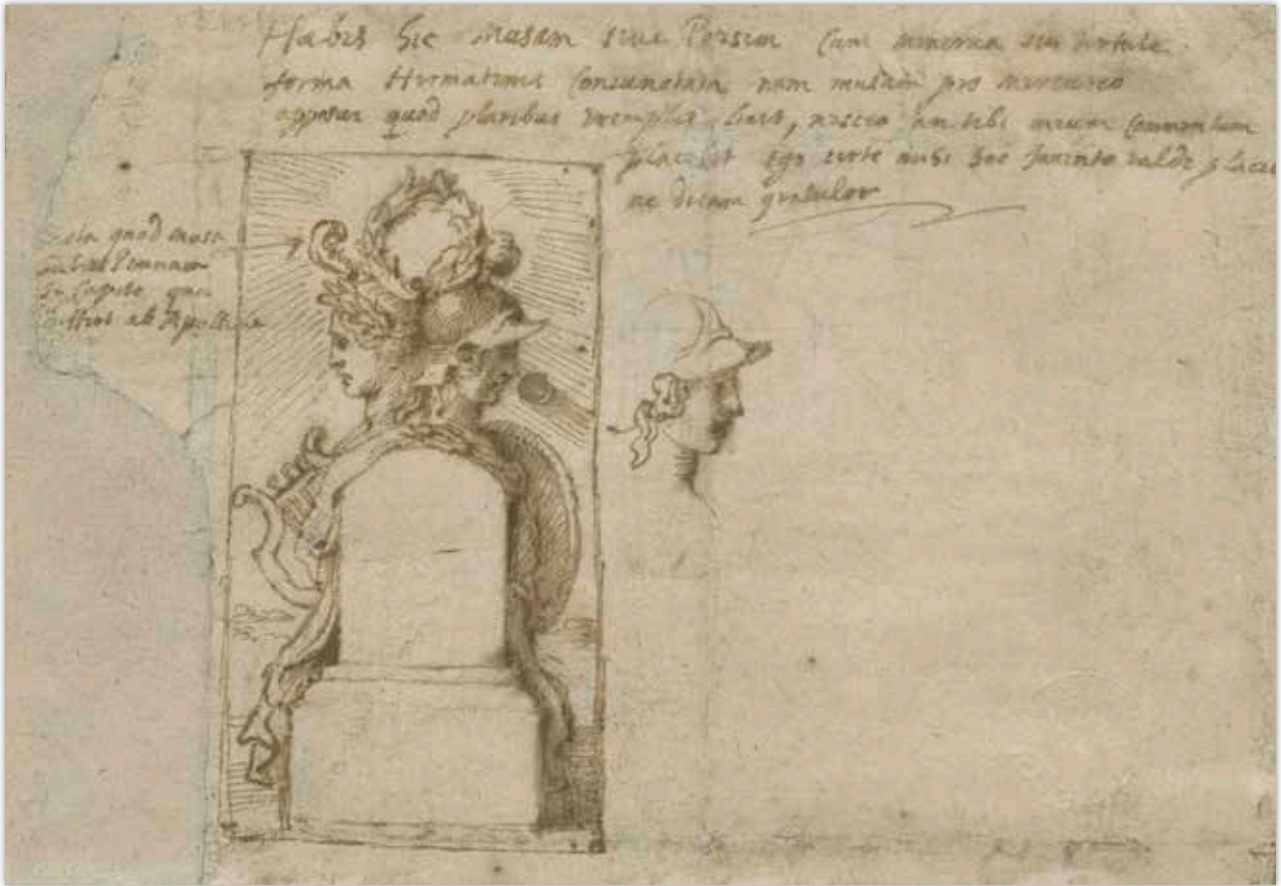 Habes hic Musam sive Poesim cum minerva seu virtute
forma Hermatenis coniunctam nam musam pro mercurio
apposui quod pluribus exemplis licet, nescio an tibi meum commentum
placebit ego certe mihi hoc invento valde placeo
ne dicam gratulor
Nota quod musa
habeat Pennam
in Capite qua
differt ab Apolline